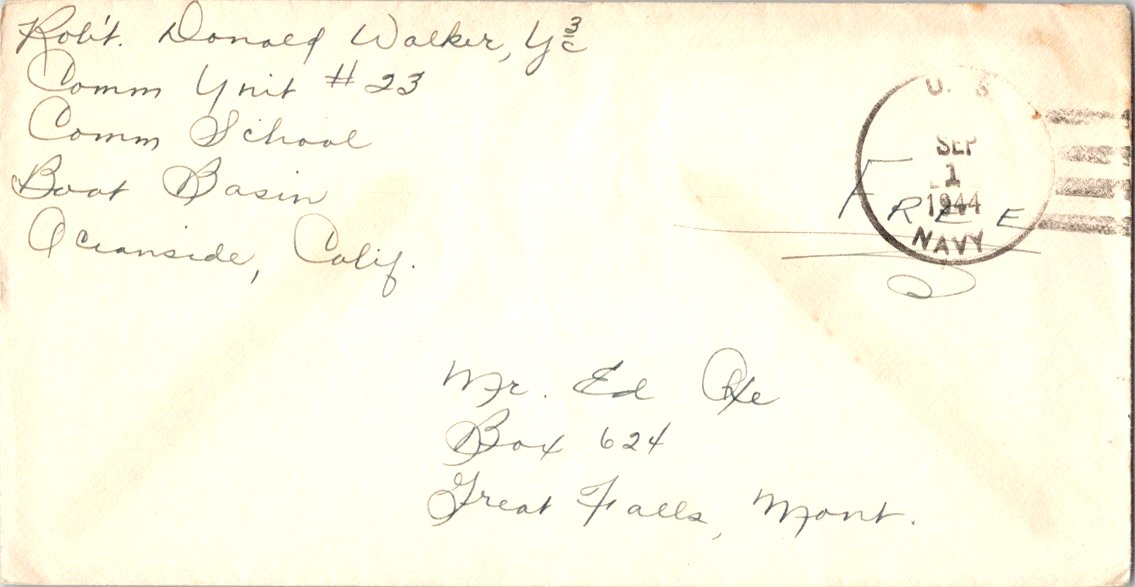 Rob't. Donald Walker, Y 3/c
Comm Unit # 23
Comm School
Boat Basin
Oceanside, Calif.
U. S.
SEP
1
1944
NAVY
FREE
Mr. Ed
Box 624
Great Falls, Mont.